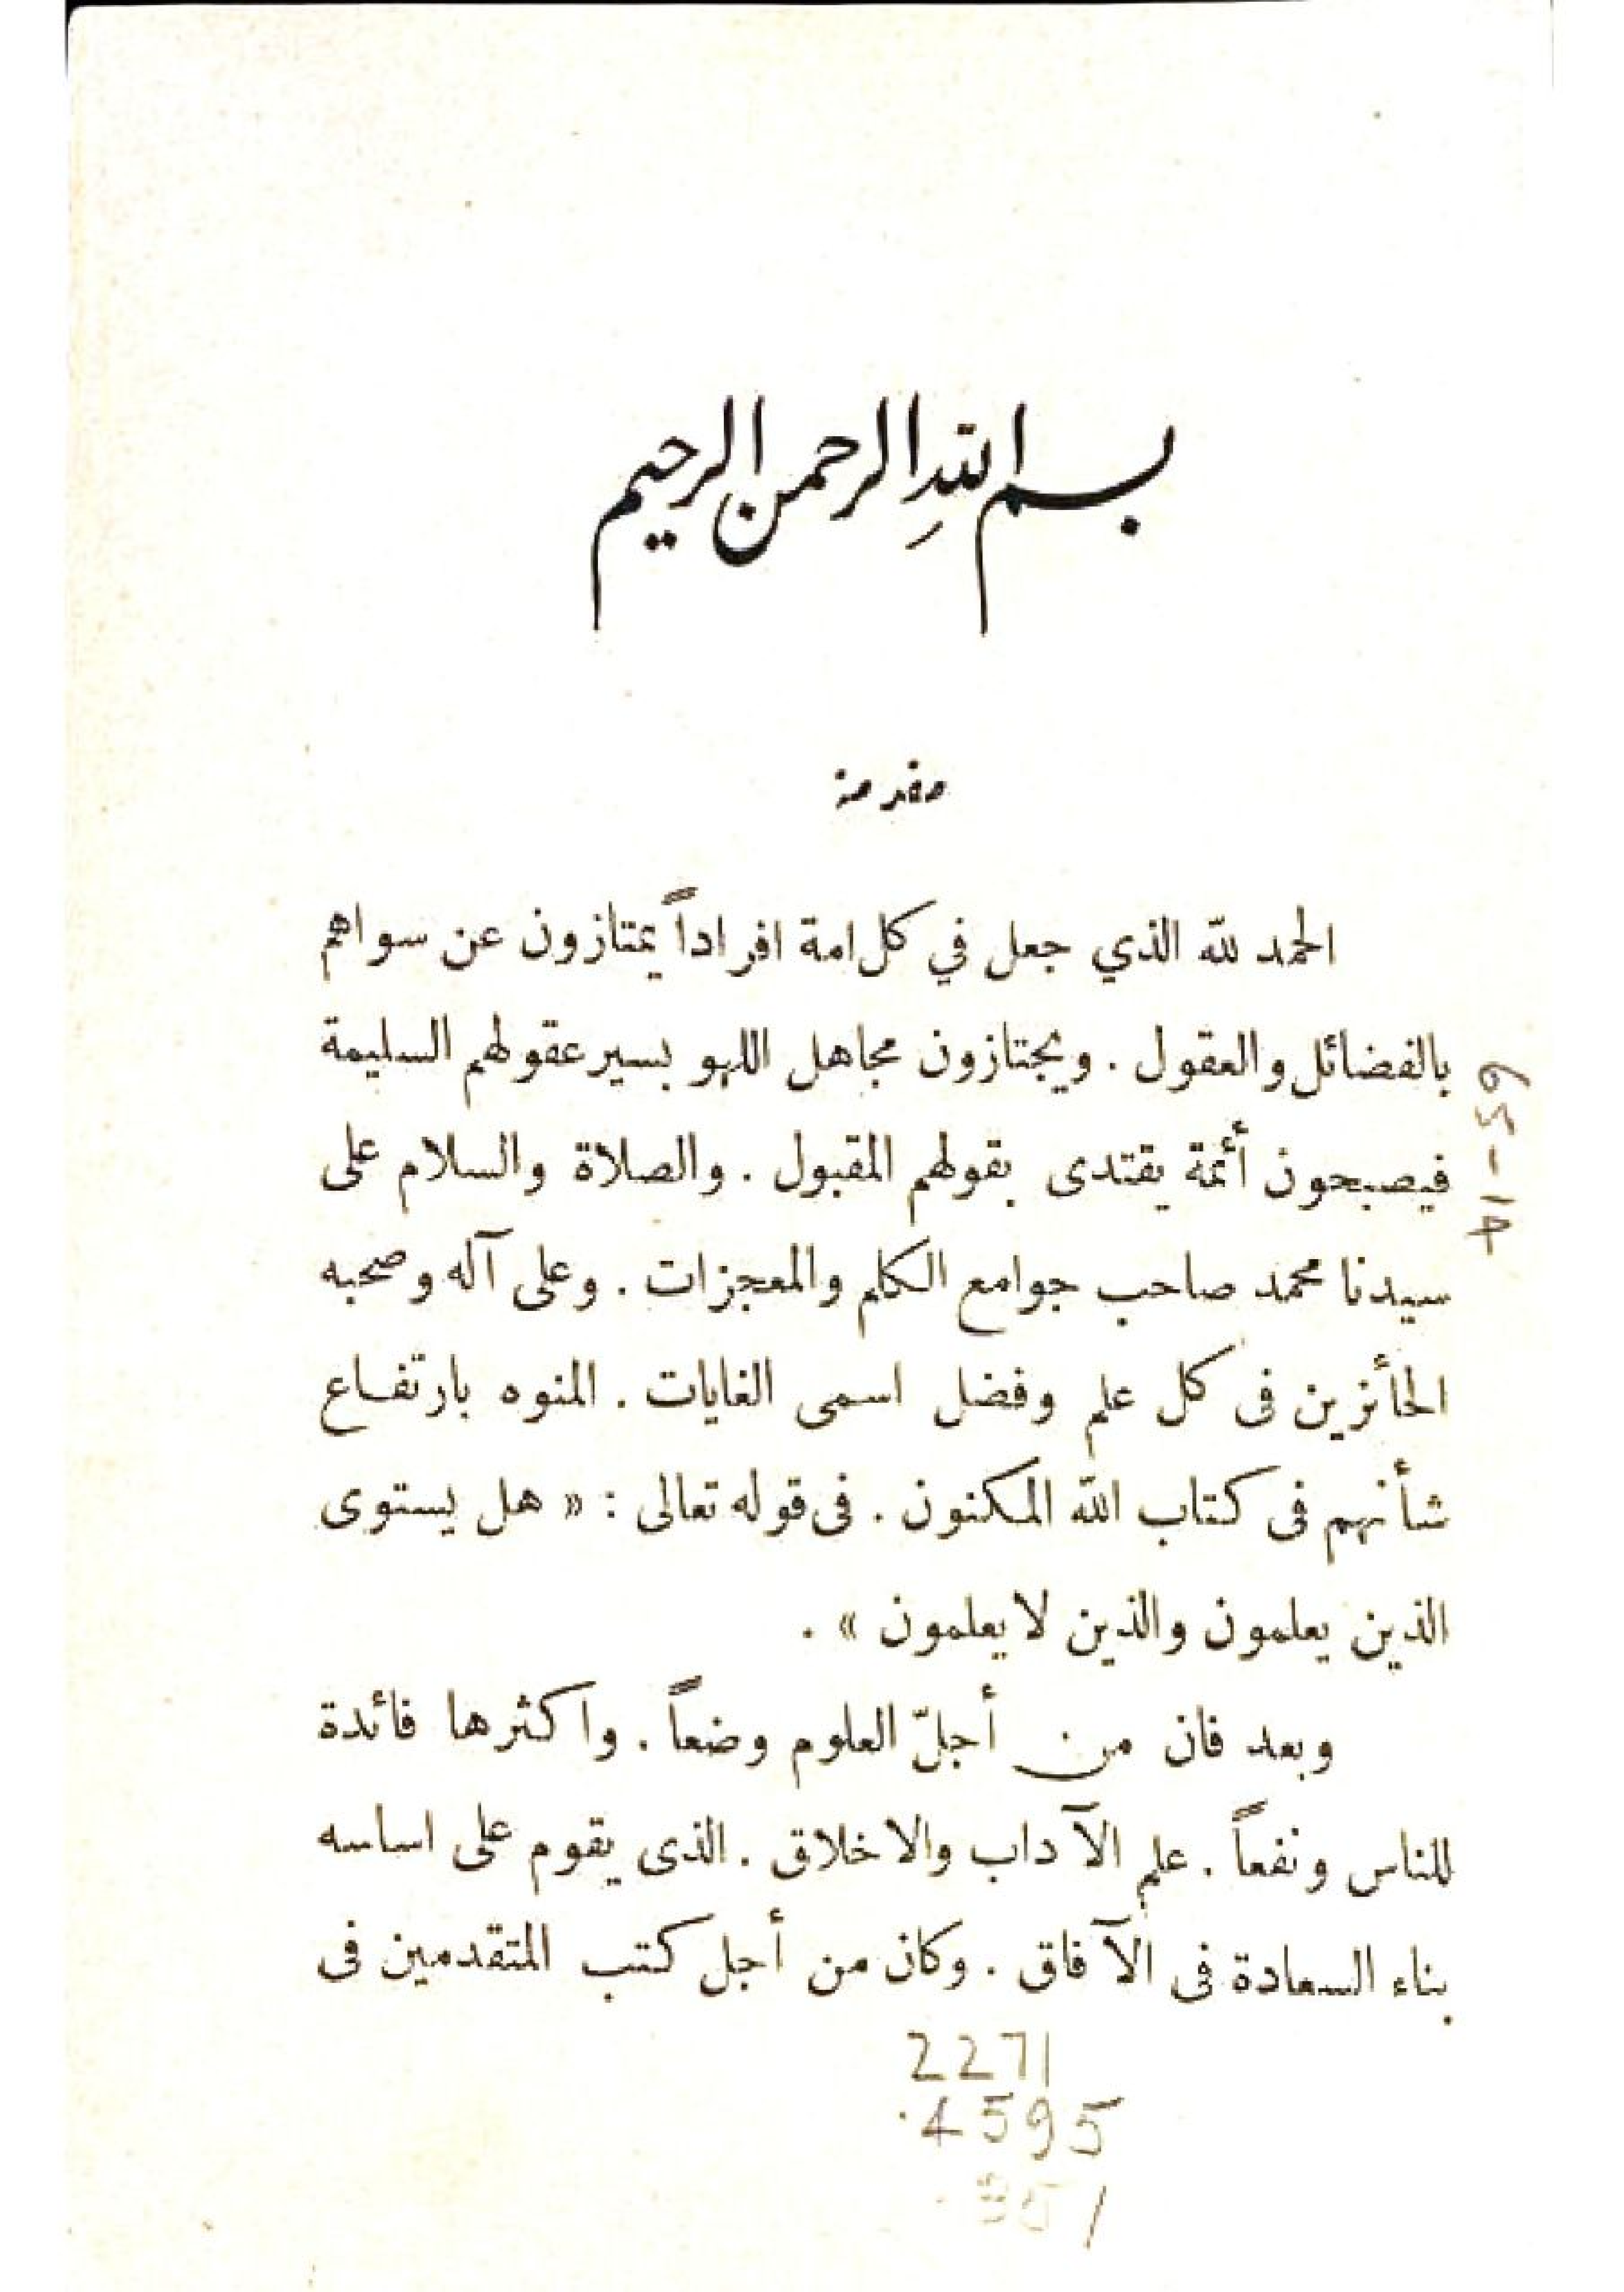 بسم الله الرحمن الرحيم
مقدمة
الحمد لله الذي جعل في كل امة افراداً يمتازون عن سواهم
بالفضائل والعقول . ويجتازون مجاهل اللهو بسير عقولهم السليمة
فيصبحون أئمة يقتدى بقولهم المقبول . والصلاة والسلام على
سيدنا محمد صاحب جوامع الكلم والمعجزات . وعلى آله وصحبه
الحأئزين فى كل علم وفضل اسمى الغايات . المنوه بارتفاع
شأنهم فى كتاب الله المكنون . فى قوله تعالى : « هل يستوى
الذين يعلمون والذين لا يعلمون » .
وبعد فان من أجلّ العلوم وضعاً . واكثرها فائدة
للناس ونفعاً . علم الآداب والاخلاق . الذى يقوم على اساسه
بناء السعادة فى الآفاق . وكان من أجل كتب المتقدمين فى
2271
.4595